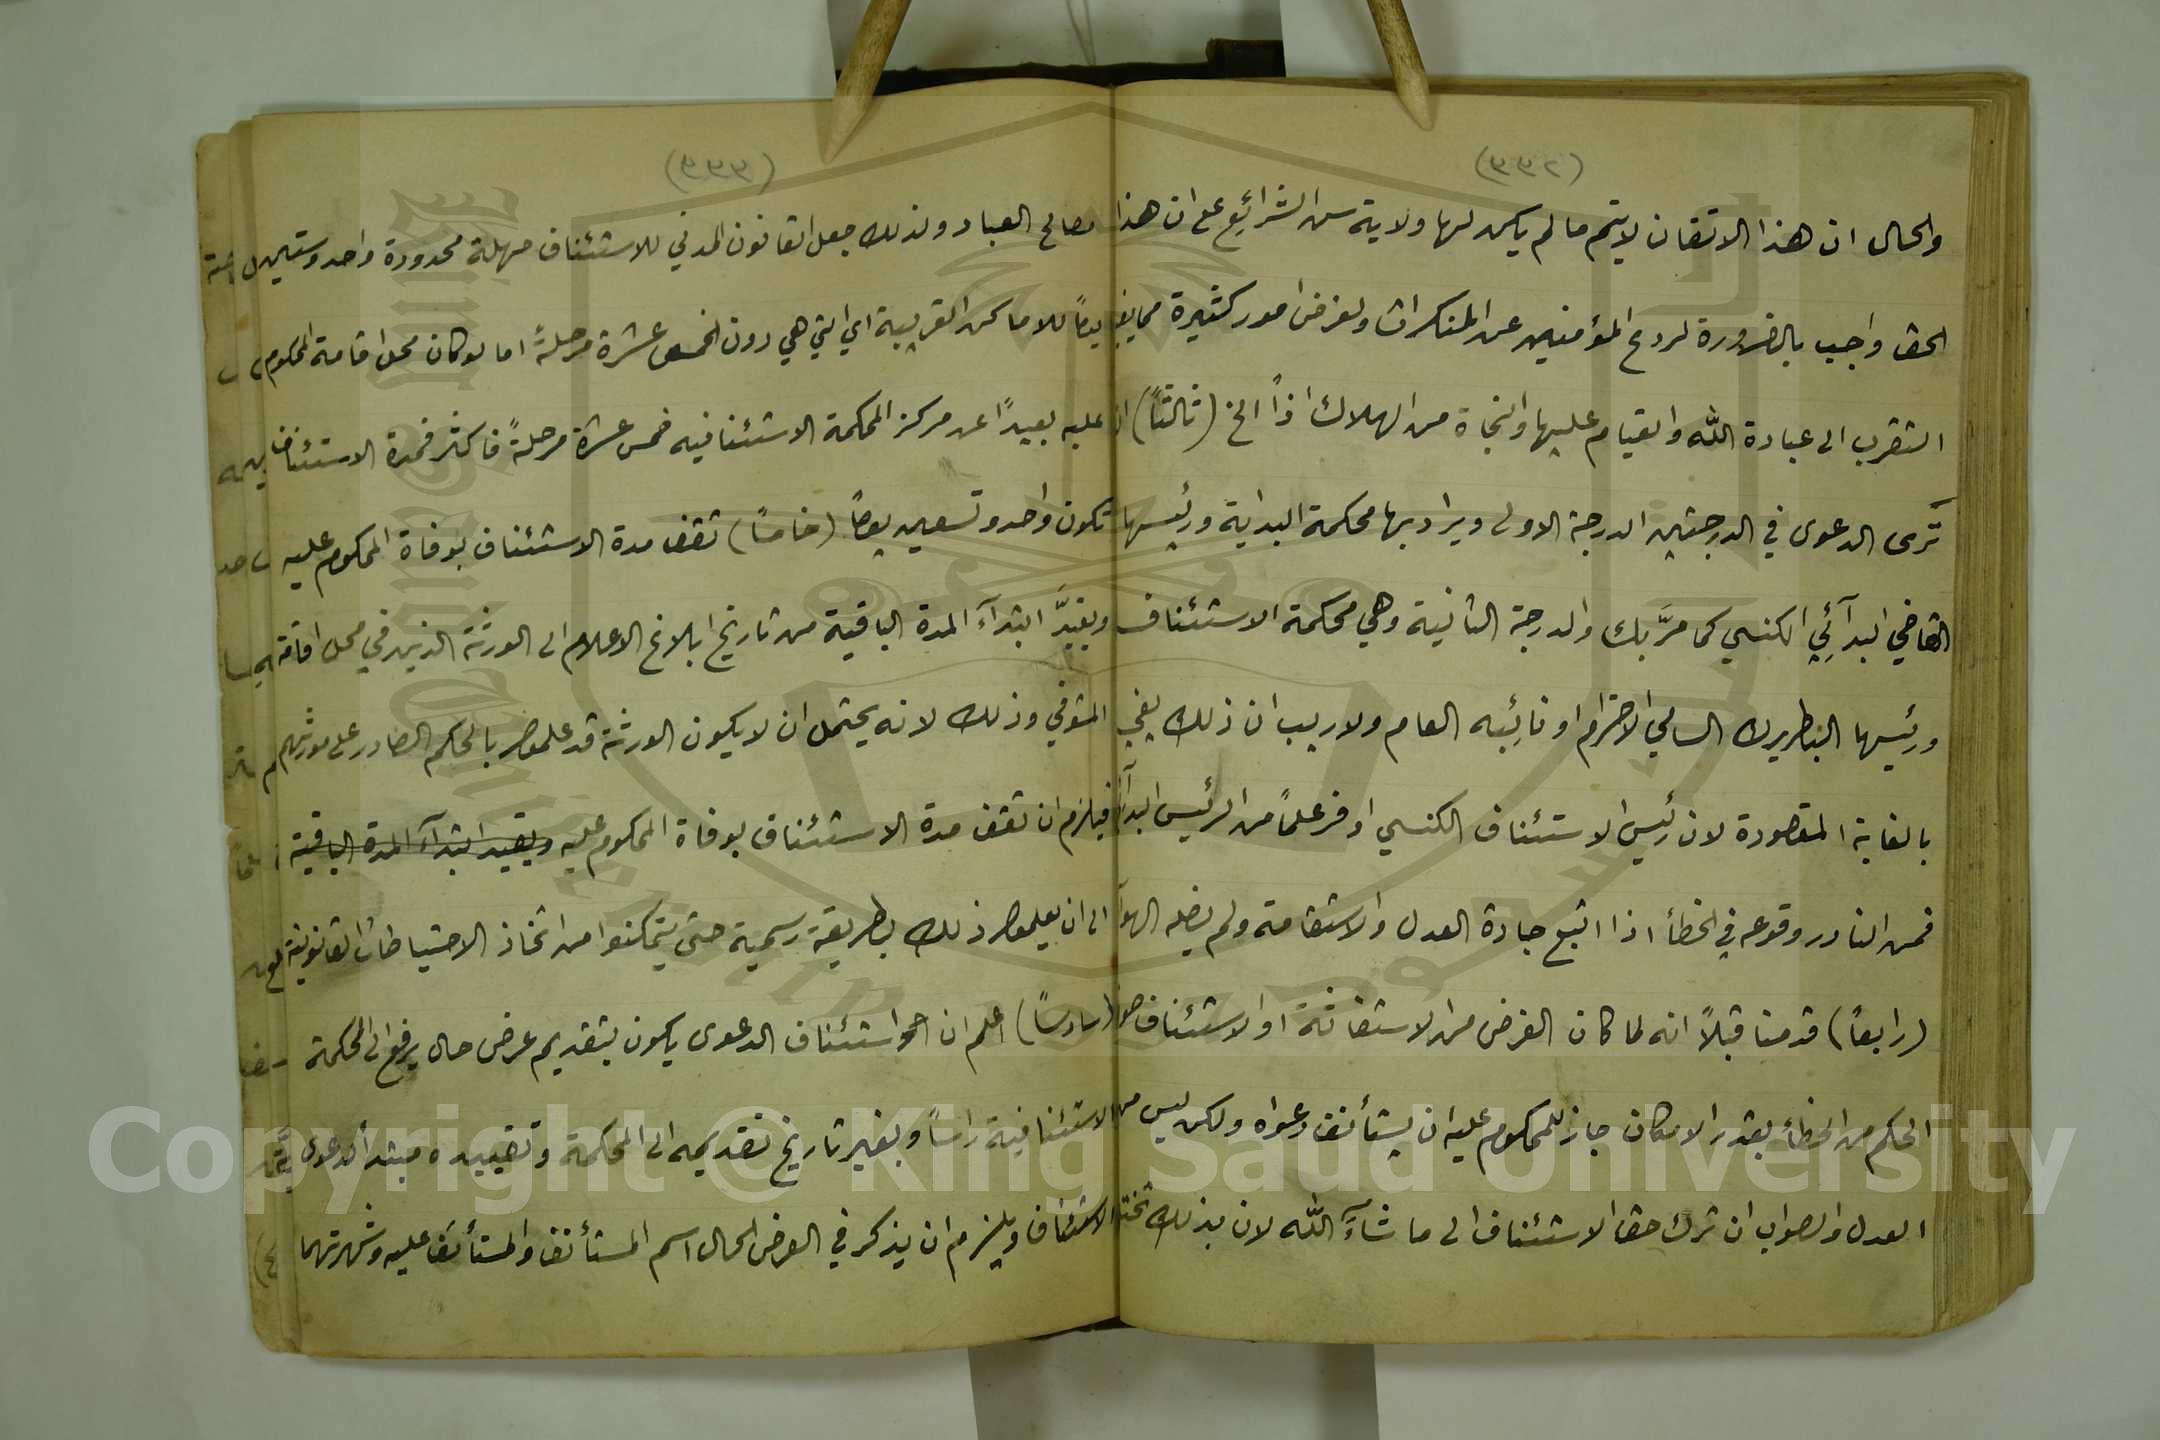 (٣٣٢)
والحال ان هذا الاتقان لا يتم ما لم يكن لها ولاية سن الشرائع مع ان هذا
الحق واجب بالضرورة لردع المؤمنين عن المنكرات ولفرض امور كثيرة مما يفيد
التقرب الى عبادة الله والقيام عليها والنجاة من الهلاك اذاً الخ (ثالثاً) ان
تُرى الدعوى في الدرجتين الدرجة الاولى ويراد بها محكمة البداية ورئيسها
القاضي البدآئي الكنسي كما مرَّ بك والدرجة الثانية وهي محكمة الاستئناف
ورئيسها البطريرك السامي الاحترام او نائبه العام ولا ريب ان ذلك يفي
بالغاية المقصودة لان رئيس الاستئناف الكنسي اوفر علماً من الرئيس البدآئي
فمن النادر وقوعه في الخطأ اذا اتبع جادة العدل والاستقامة ولم يضله الهوآ
(رابعاً) قدمنا قبلاً انه لما كان الغرض من الاستغاثة او الاستئناف صون
الحكم من الخطأ بقدر الامكان جاز للمحكوم عليه ان يستأنف دعواه ولكن ليس من
العدل والصواب ان ترك حق الاستئناف الى ما شآء الله لان بذلك تختل
(٣٣٣)
مصالح العباد ولذلك جعل القانون المدني للاستئناف مهلة محدودة واحد وستين
يوماً للاماكن القريبة اي التي هي دون الخمس عشرة مرحلةً اما لو كان محل اقامة المحكوم
عليه بعيدًا عن مركز المحكمة الاستئنافيه خمس عشرة مرحلةً فاكثر فمدة الاستئناف
تكون واحد وتسعين يوماً (خامساً) تقف مدة الاستئناف بوفاة المحكوم عليه
ويقيَّد ابتدآء المدة الباقية من تاريخ ابلاغ الاعلام الى الورثة الذين في محل اقامة
المتوفي وذلك لانه يحتمل ان لا يكون الورثة قد علموا بالحكم الصادر على مورثهم
فيلزم ان تقف مدة الاستئناف بوفاة المحكوم عليه ويقيد ابتدآء المدة الباقية
الى ان يعلموا ذلك بطريقة رسمية حتى يتمكنوا من اتخاذ الاحتياطات القانونية
(سادساً) اعلم ان استئناف الدعوى يكون بتقديم عرض حال يرفع الى المحكمة
الاستئنافية راساً وبغير تاريخ تقديمه الى المحكمة وتقييده مبتدأ دعوى
الاستئناف ويلزم ان يذكر في العرض الحال اسم المستأنف والمستأنف عليه وشهرتهما
Copyright © King Saud University